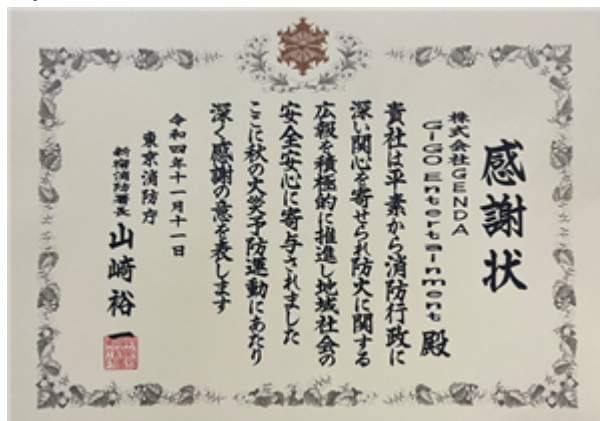 感謝状
株式会社GENDA
GiGO Entertainment 殿
貴社は平素から消防行政に
深い関心を寄せられ防火に関する
広報を積極的に推進し地域社会の
安全安心に寄与されました
ここに秋の火災予防運動にあたり
深く感謝の意を表します
令和四年十一月十一日
東京消防庁
新宿消防署長 山崎裕一